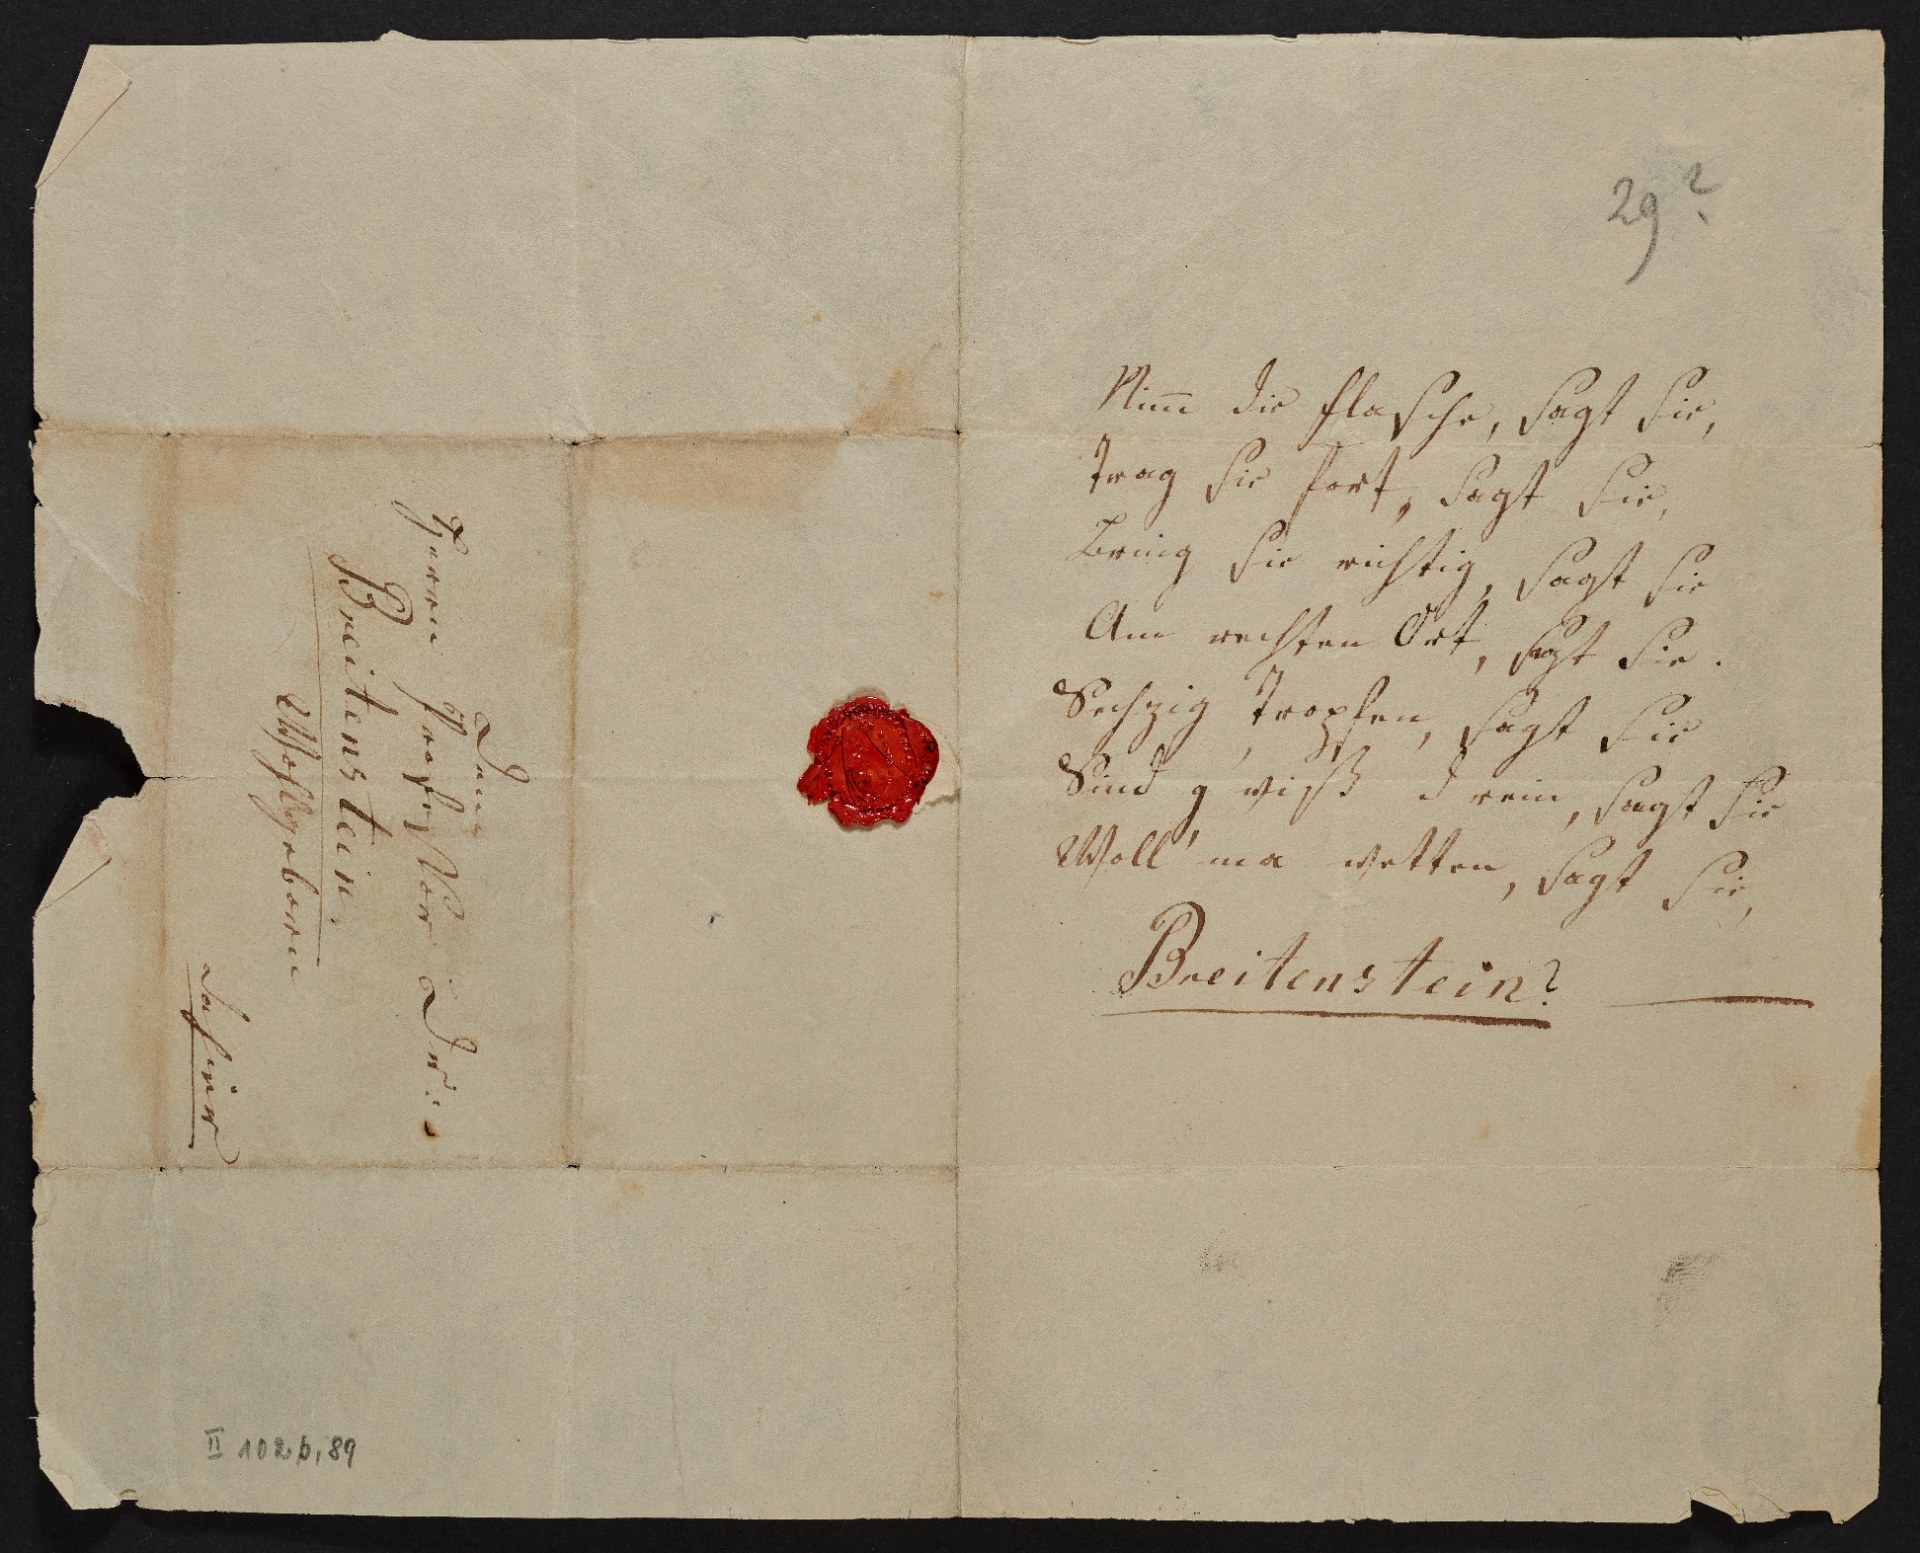 29?
Nim̅ die Flasche, sagt Sie,
Trag sie fort, sagt Sie,
Bring sie richtig, sagt Sie
Am rechten Ort, sagt Sie.
Sechzig Tropfen, sagt Sie
Sind g'wiß drein, sagt Sie
Woll' ma wetten, sagt Sie,
Breitenstein?
Dem
Herrn Professor Dr:
Breitenstein
Wohlgeborn
dahier
II 102b, 89